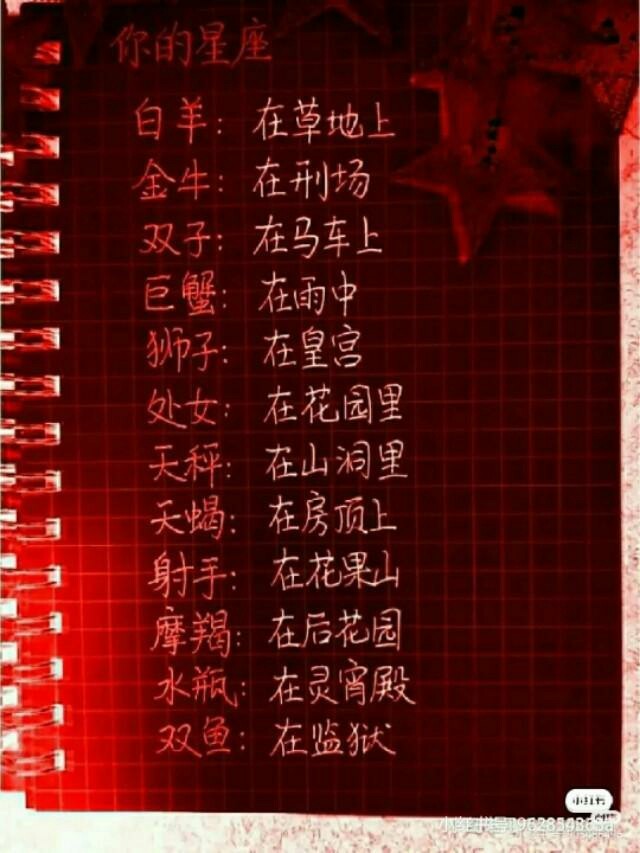 你的星座
白羊：在草地上
金牛：在刑场
双子：在马车上
巨蟹：在雨中
狮子：在皇宫
处女：在花园里
天秤：在山洞里
天蝎：在房顶上
射手：在花果山
摩羯：在后花园
水瓶：在灵宵殿
双鱼：在监狱
小红书